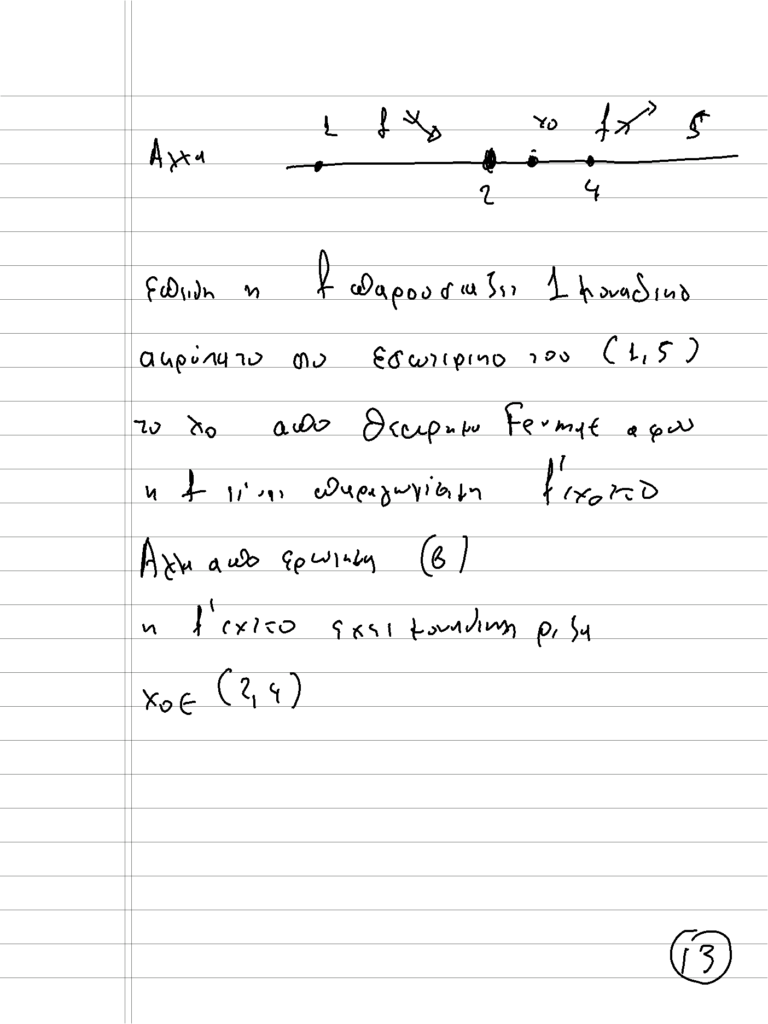 1 f ↘ x0 f ↗ 5
Αρα
2 4
Επειδη η f παρουσιαζει 1 μοναδικο
ακρότατο στο εσωτερικο του (1,5)
το x0 απο θεωρημα Fermat αφου
η f είναι παραγωγίσιμη f'(x0)=0
Αρα απο ερωτηση (β)
η f'(x)=0 εχει μοναδικη ριζα
x0∈ (2,4)
13